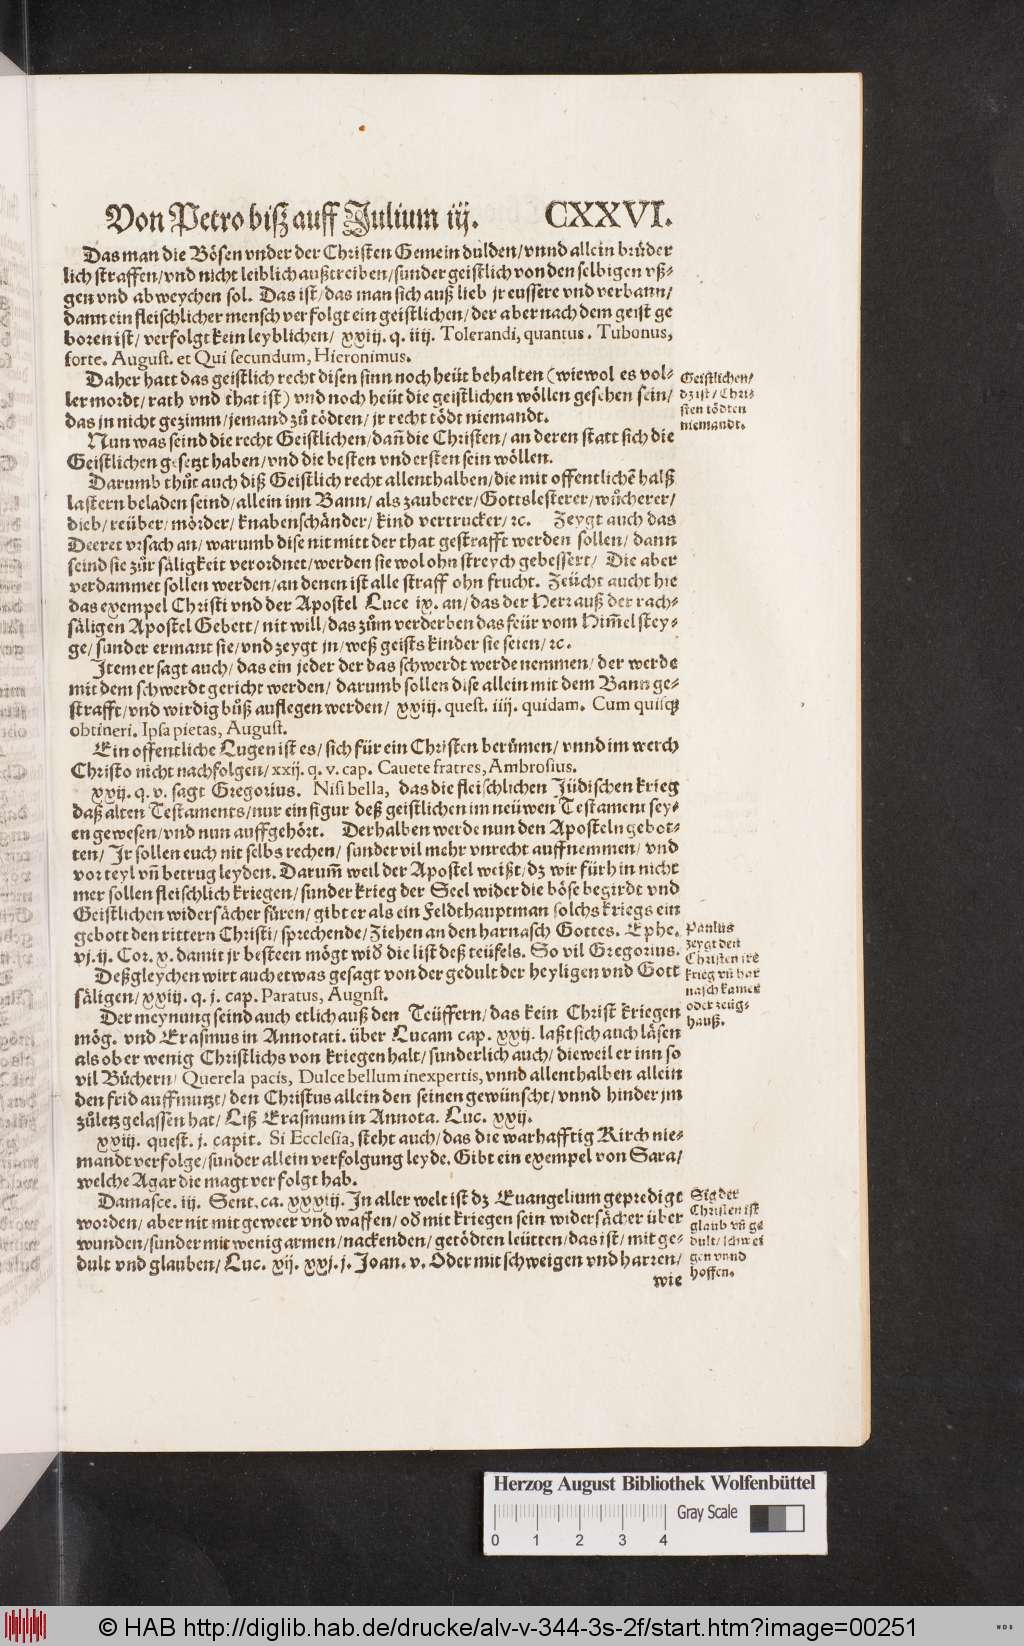 Von Petro biß auff Julium iij. CXXVI.
Das man die Bösen vnder der Christen Gemein dulden/ vnnd allein brüder
lich straffen/ vnd nicht leiblich außtreiben/ sunder geistlich von den selbigen vß-
gen vnd abweychen sol. Das ist/ das man sich auß lieb jr eussere vnd verbann/
dann ein fleischlicher mensch verfolgt ein geistlichen/ der aber nach dem geist ge
boren ist/ verfolgt kein leyblichen/ xxiij. q. iiij. Tolerandi, quantus. Tubonus,
forte. August. et Qui secundum, Hieronimus.
Daher hatt das geistlich recht disen sinn noch heüt behalten (wiewol es vol-
ler mordt/ rath vnd that ist) vnd noch heüt die geistlichen wöllen gesehen sein/
das jn nicht gezimm/ jemand zů tödten/ jr recht tödt niemandt.
Geistlichen/
dz ist/ Chri-
sten tödten
niemandt.
Nun was seind die recht Geistlichen/ dañ die Christen/ an deren statt sich die
Geistlichen gesetzt haben/ vnd die besten vnd ersten sein wöllen.
Darumb thůt auch diß Geistlich recht allenthalben/ die mit offentlichē halß
lastern beladen seind/ allein inn Bann/ als zauberer/ Gottslesterer/ wůcherer/
dieb/ reüber/ mörder/ knabenschänder/ kind vertrucker/ ꝛc. Zeygt auch das
Decret vrsach an/ warumb dise nit mitt der that gestrafft werden sollen/ dann
seind sie zůr säligkeit verordnet/ werden sie wol ohn streych gebessert/ Die aber
verdammet sollen werden/ an denen ist alle straff ohn frucht. Zeücht aucht hie
das exempel Christi vnd der Apostel Luce ix. an/ das der Herr auß der rach-
säligen Apostel Gebett/ nit will/ das zům verderben das feür vom Him̃el stey-
ge/ sunder ermant sie/ vnd zeygt jn/ weß geists kinder sie seien/ ꝛc.
Item er sagt auch/ das ein jeder der das schwerdt werde nemmen/ der werde
mit dem schwerdt gericht werden/ darumb sollen dise allein mit dem Bann ge-
strafft/ vnd wirdig bůß auflegen werden/ xxiij. quest. iiij. quidam. Cum quisq;
obtineri. Ipsa pietas, August.
Ein offentliche Lugen ist es/ sich für ein Christen berümen/ vnnd im werch
Christo nicht nachfolgen/ xxij. q. v. cap. Cauete fratres, Ambrosius.
xxij. q. v. sagt Gregorius. Nisi bella, das die fleischlichen Jüdischen krieg
daß alten Testaments/ nur ein figur deß geistlichen im neüwen Testament sey-
en gewesen/ vnd nun auffgehört. Derhalben werde nun den Aposteln gebot-
ten/ Jr sollen euch nit selbs rechen/ sunder vil mehr vnrecht auffnemmen/ vnd
vorteyl vñ betrug leyden. Darum̃ weil der Apostel weißt/ dz wir fürhin nicht
mer sollen fleischlich kriegen/ sunder krieg der Seel wider die böse begirdt vnd
Geistlichen widersächer füren/ gibt er als ein Feldthauptman solchs kriegs ein
gebott den rittern Christi/ sprechende/ Ziehen an den harnasch Gottes. Ephe.
vj. ij. Cor. x. damit jr besteen mögt wið die list deß teüfels. So vil Gregorius.
Paulus
zeygt den
Christen jre
krieg vñ har
nasch kamer
oder zeüg-
hauß.
Deßgleychen wirt auch etwas gesagt von der gedult der heyligen vnd Gott
säligen/ xxiij. q. j. cap. Paratus, Augnst.
Der meynung seind auch etlich auß den Teüffern/ das kein Christ kriegen
mög. vnd Erasmus in Annotati. über Lucam cap. xxij. laßt sich auch läsen
als ob er wenig Christlichs von kriegen halt/ sunderlich auch/ dieweil er inn so
vil Büchern/ Querela pacis, Dulce bellum inexpertis, vnnd allenthalben allein
den frid auffmutzt/ den Christus allein den seinen gewünscht/ vnnd hinder jm
zůletz gelassen hat/ Liß Erasmum in Annota. Luc. xxij.
xxiij. quest. j. capit. Si Ecclesia, steht auch/ das die warhafftig Kirch nie-
mandt verfolge/ sunder allein verfolgung leyde. Gibt ein exempel von Sara/
welche Agar die magt verfolgt hab.
Damasce. iij. Sent. ca. In aller welt ist dz Euangelium gepredigt
worden/ aber nit mit geweer vnd waffen/ oð mit kriegen sein widersächer über
wunden/ sunder mit wenig armen/ nackenden/ getödten leütten/ das ist/ mit ge-
dult vnd glauben/ Luc. xij. xxj. j. Joan. v. Oder mit schweigen vnd harren/
Sig der
Christen ist
glaub vñ ge
dult/ schwei
gen vnnd
hoffen.
wie
Herzog August Bibliothek Wolfenbüttel
Gray Scale
0 1 2 3 4
© HAB http://diglib.hab.de/drucke/alv-v-344-3s-2f/start.htm?image=00251